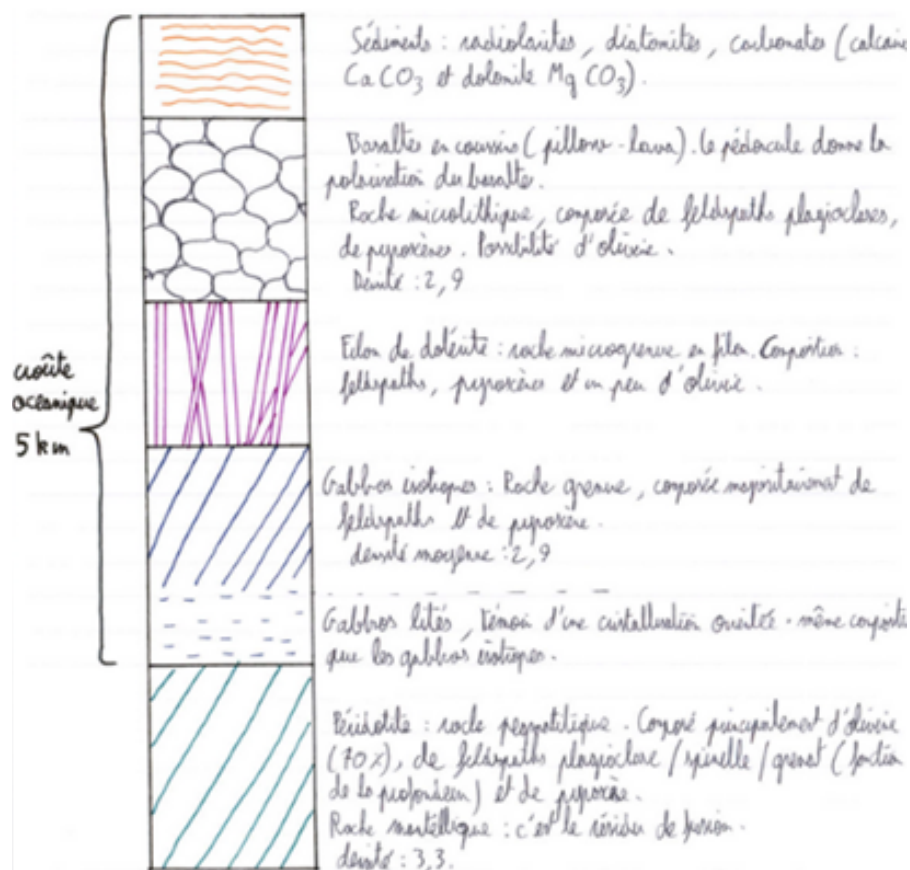 Sédiments : radiolarites, diatomites, carbonates (calcaire
CaCO3 et dolomite MgCO3).
Basaltes en coussins (pillow-lava). Le pédoncule donne la
polarisation du basalte.
Roche microlithique, composée de feldspaths plagioclases,
de pyroxènes. Possibilité d'olivine.
Densité : 2,9
Filon de dolérite : roche microgrenue en filon. Composition :
feldspaths, pyroxènes et un peu d'olivine.
croûte
océanique
5 km
Gabbros isotropes : Roche grenue, composée majoritairement de
feldspaths et de pyroxène.
densité moyenne : 2,9
Gabbros lités, témoin d'une cristallisation orientée - même composition
que les gabbros isotropes.
Péridotite : roche pegmatitique. Composé principalement d'olivine
(70%), de feldspaths plagioclase / spinelle / grenat (fonction
de la profondeur) et de pyroxène.
Roche mantellique : c'est le résidu de fusion.
densité : 3,3.